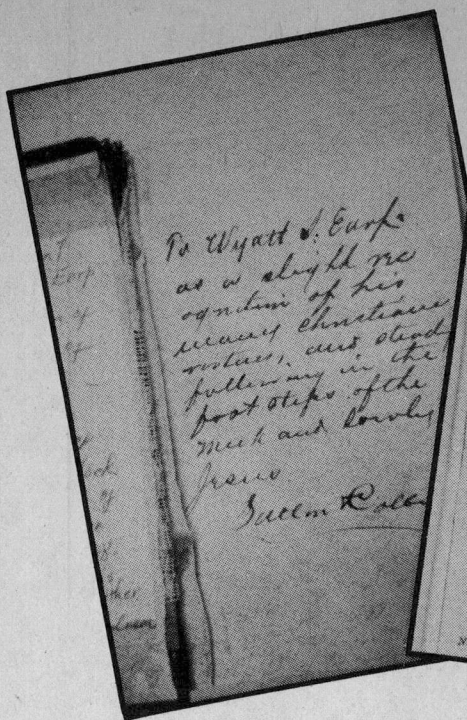 Earp
of
of
ck
of
her
To Wyatt S. Earp
as a slight rec
ognition of his
many christian
virtues, and stead
following in the
foot steps of the
meek and lowly
Jesus
Sutton &
N